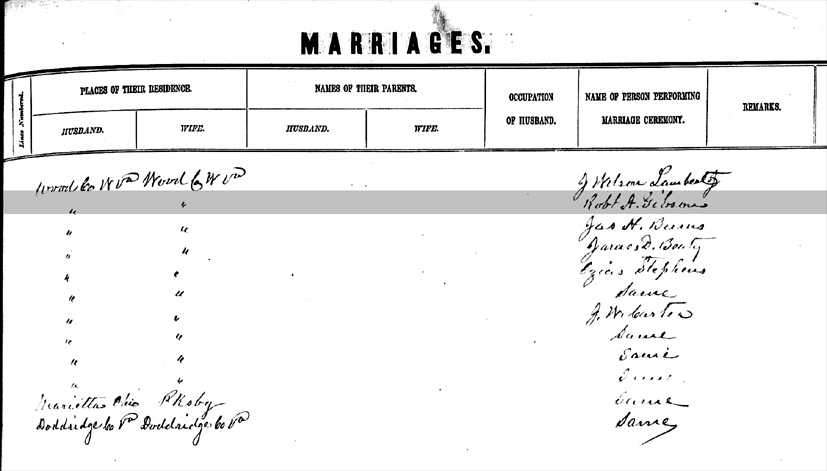 MARRIAGES.
Lines Numbered. PLACES OF THEIR RESIDENCE. NAMES OF THEIR PARENTS. OCCUPATION OF HUSBAND. NAME OF PERSON PERFORMING MARRIAGE CEREMONY. REMARKS.
HUSBAND. WIFE. HUSBAND. WIFE.
Wood Co W Va Wood Co W Va J Wilson
" " Robt A. Gibson
" " Jas H. Burns
" " James D.
" " Stephens
" " Same
" " J. W. Carter
" " Same
" " Same
" "
Marietta Ohio Pksbg Same
Doddridge Co Va Doddridge Co Va Same